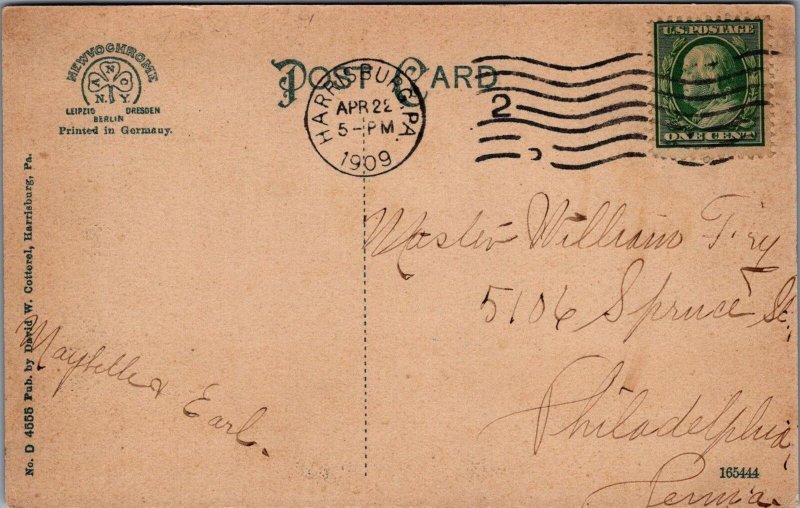 NEWVOCHROME
A N C
N. Y.
LEIPZIG DRESDEN
BERLIN
Printed in Germany.
POST CARD
HARRISBURG, PA.
APR 22
5-PM
1909
2
U.S. POSTAGE
ONE CENT
Master William
5106 Spruce St,
Philadelphia,
Penn'a.
Maybelle & Earl.
No. D 4555 Pub. by David W. Cotterel, Harrisburg, Pa.
165444